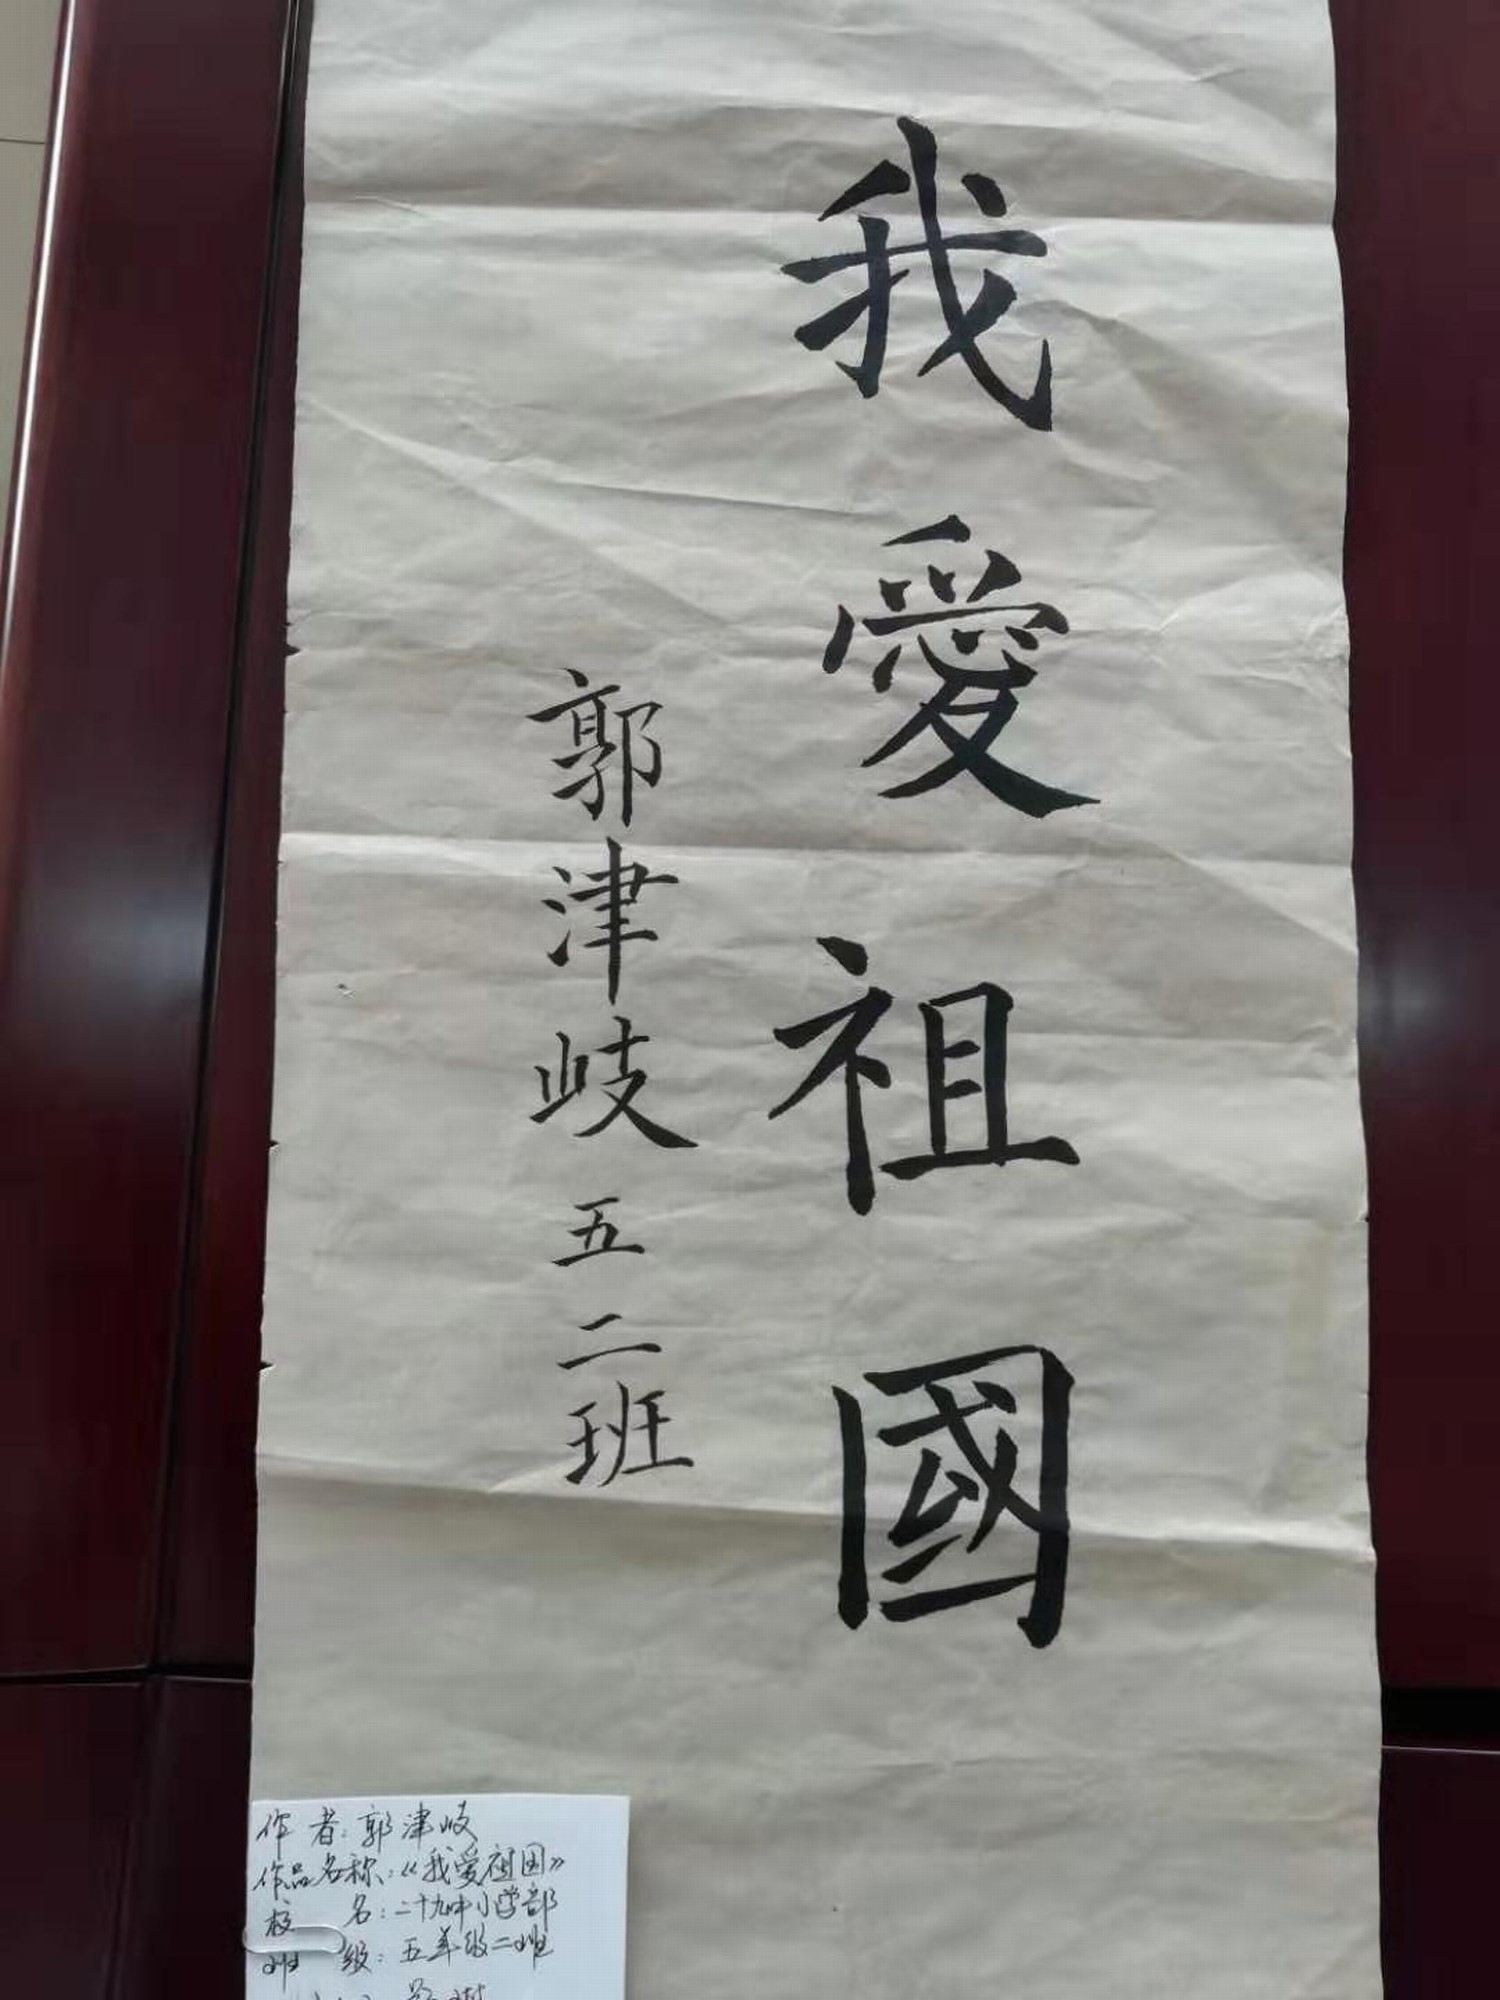 我愛祖國
郭津岐 五二班
作者:郭津岐
作品名称:《我爱祖国》
校名:二十九中小学部
班级:五年级二班